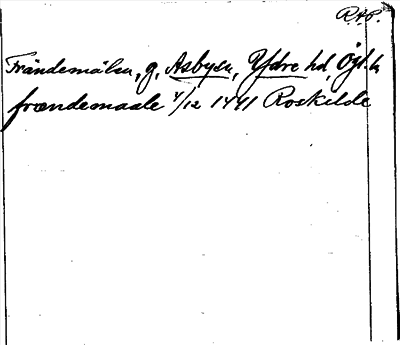 R.A.P.
Frändemåla, g, Asbysn, Ydre hd, Ögl. ln
frændemaale 4/12 1441 Roskilde